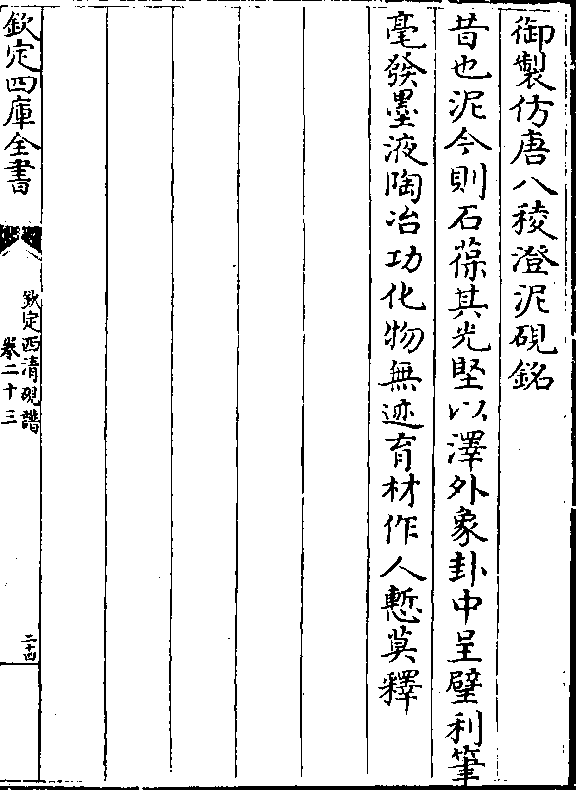 御製仿唐八稜澄泥硯銘
昔也泥今則石葆其光堅以澤外象卦中呈璧利筆
毫發墨液陶冶功化物無迹育材作人慙莫釋
欽定四庫全書
欽定西清硯譜
卷二十三
二十四